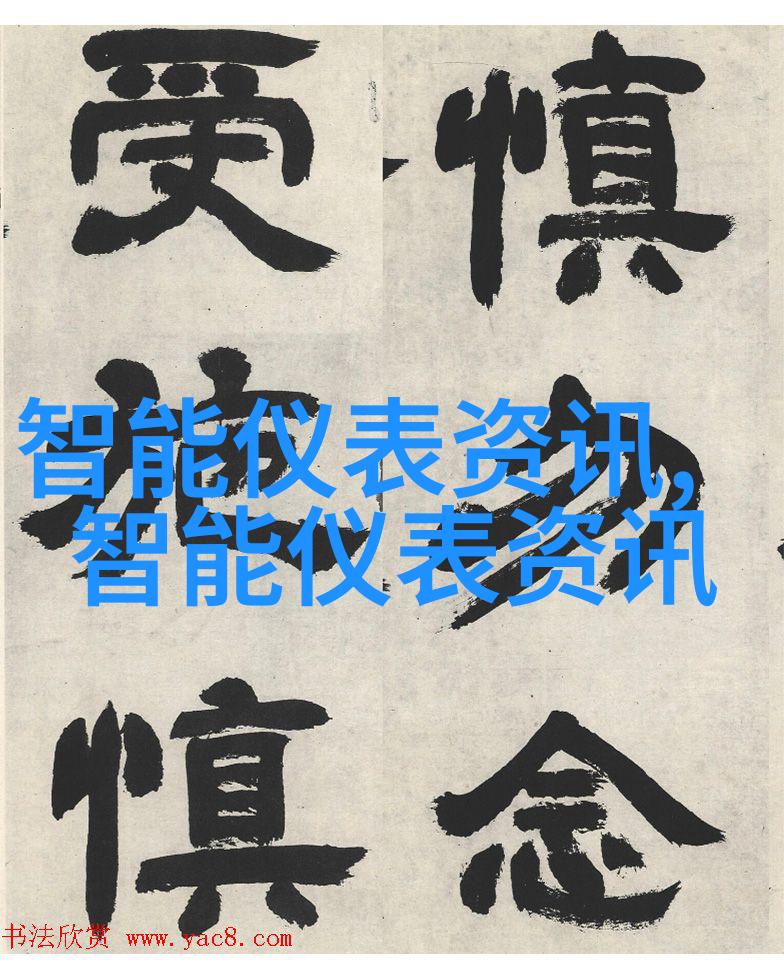 慎勿念
受施慎
智能仪表资讯,
智能仪表资讯
书法欣赏 www.yac8.com